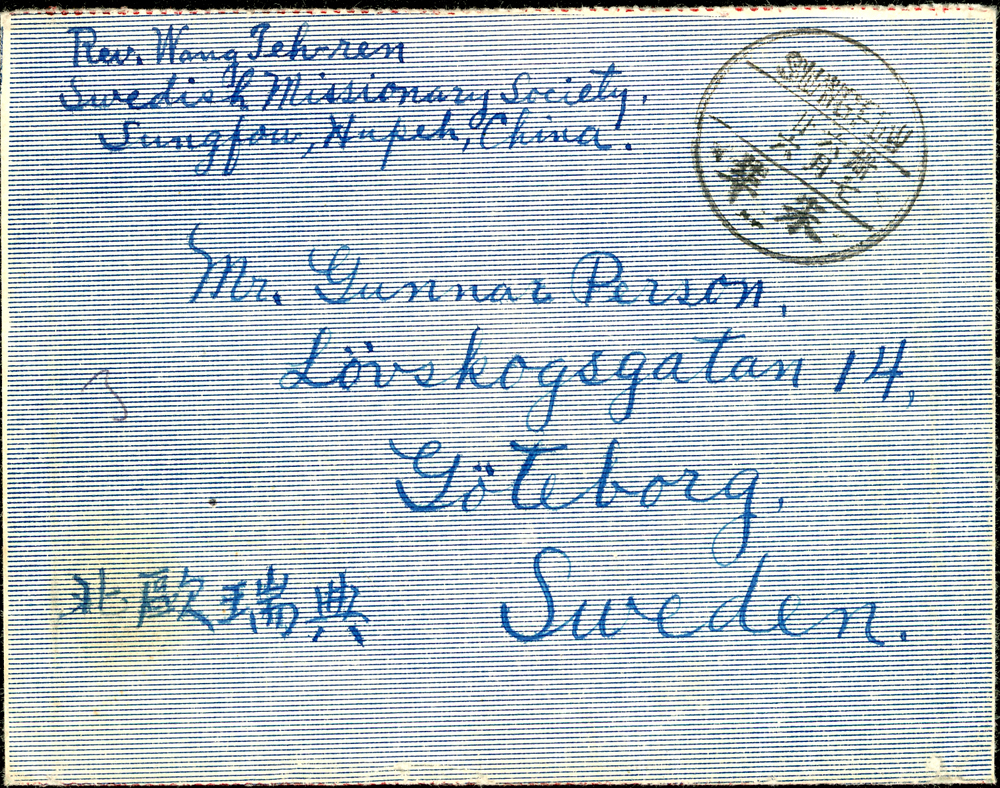 Rev. Wang Teh-ren
Swedish Missionary Society,
Sungfow, Hupeh, China.
SUNGFOW
廿六
六月七
宋
Mr. Gunnar Person,
Lövskogsgatan 14,
Göteborg,
Sweden.
北歐瑞典
3